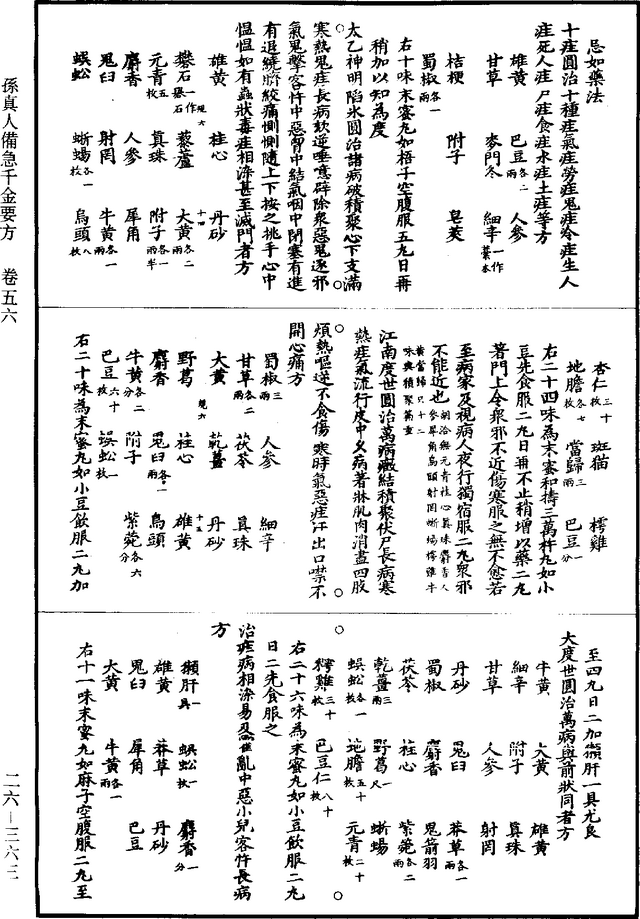 忌如藥法
十疰圓治十種疰氣疰勞疰鬼疰冷疰生人
疰死人疰尸疰食疰水疰土疰等方
雄黃 巴豆各二兩 人參
甘草 麥門冬 細辛一作藁本
桔梗 附子 皂莢
蜀椒各一兩
右十味末蜜丸如梧子空腹服五丸日再
稍加以知為度
太乙神明陷冰圓治諸病破積聚心下支滿
寒熱鬼疰長病欬逆唾噫辟除衆惡鬼逐邪
氣鬼擊客忤中惡胷中結氣咽中閉塞有進
有退繞臍絞痛惻惻隨上下按之挑手心中
愠愠如有蟲狀毒疰相染甚至滅門者方
雄黃 桂心 丹砂
礬石一作礜石 藜蘆 大黃各二兩
元青五枚 真珠 附子各一兩半
麝香 人參 犀角
鬼臼 射罔 牛黃各一兩
蜈蚣 蜥蜴各一枚 烏頭八枚
杏仁三十枚 斑猫 樗雞
地膽各七枚 當歸三兩 巴豆一分
右二十四味為末蜜和擣三萬杵丸如小
豆先食服二丸日再不止稍增以藥二丸
著門上令衆邪不近傷寒服之無不愈若
至病家及視病人夜行獨宿服二丸衆邪
不能近也
江南度世圓治萬病癥結積聚伏尸長病寒
熱疰氣流行皮中久病著牀肌肉消盡四肢
煩熱嘔逆不食傷寒時氣惡疰汗出口噤不
開心痛方
蜀椒三兩 人參 細辛
甘草各二兩 茯苓 真珠
大黃 乾薑 丹砂
野葛 桂心 雄黃
麝香 鬼臼各一兩 烏頭
牛黃各二分 附子 紫菀各六分
巴豆六十枚 蜈蚣一枚
右二十味為末蜜丸如小豆飲服二丸加
至四丸日二加獺肝一具尤良
大度世圓治萬病與前狀同者方
牛黃 大黃 雄黃
細辛 附子 真珠
甘草 人參 射罔
丹砂 鬼臼 莽草各一兩
蜀椒 麝香 鬼箭羽
茯苓 桂心 紫菀各二兩
乾薑三兩 野葛一尺 蜥蜴
蜈蚣各一枚 地膽五十枚 元青二十枚
樗雞三十枚 巴豆仁八十枚
右二十六味為末蜜丸如小豆飲服二丸
日二先食服之
治疰病相染易及霍亂中惡小兒客忤長病
方
獺肝一具 蜈蚣一枚 麝香一分
雄黃 莽草 丹砂
鬼臼 犀角 巴豆
大黃 牛黃各一兩
右十一味末蜜丸如麻子空腹服二丸至
孫真人備急千金要方 卷五六
二六—三六三